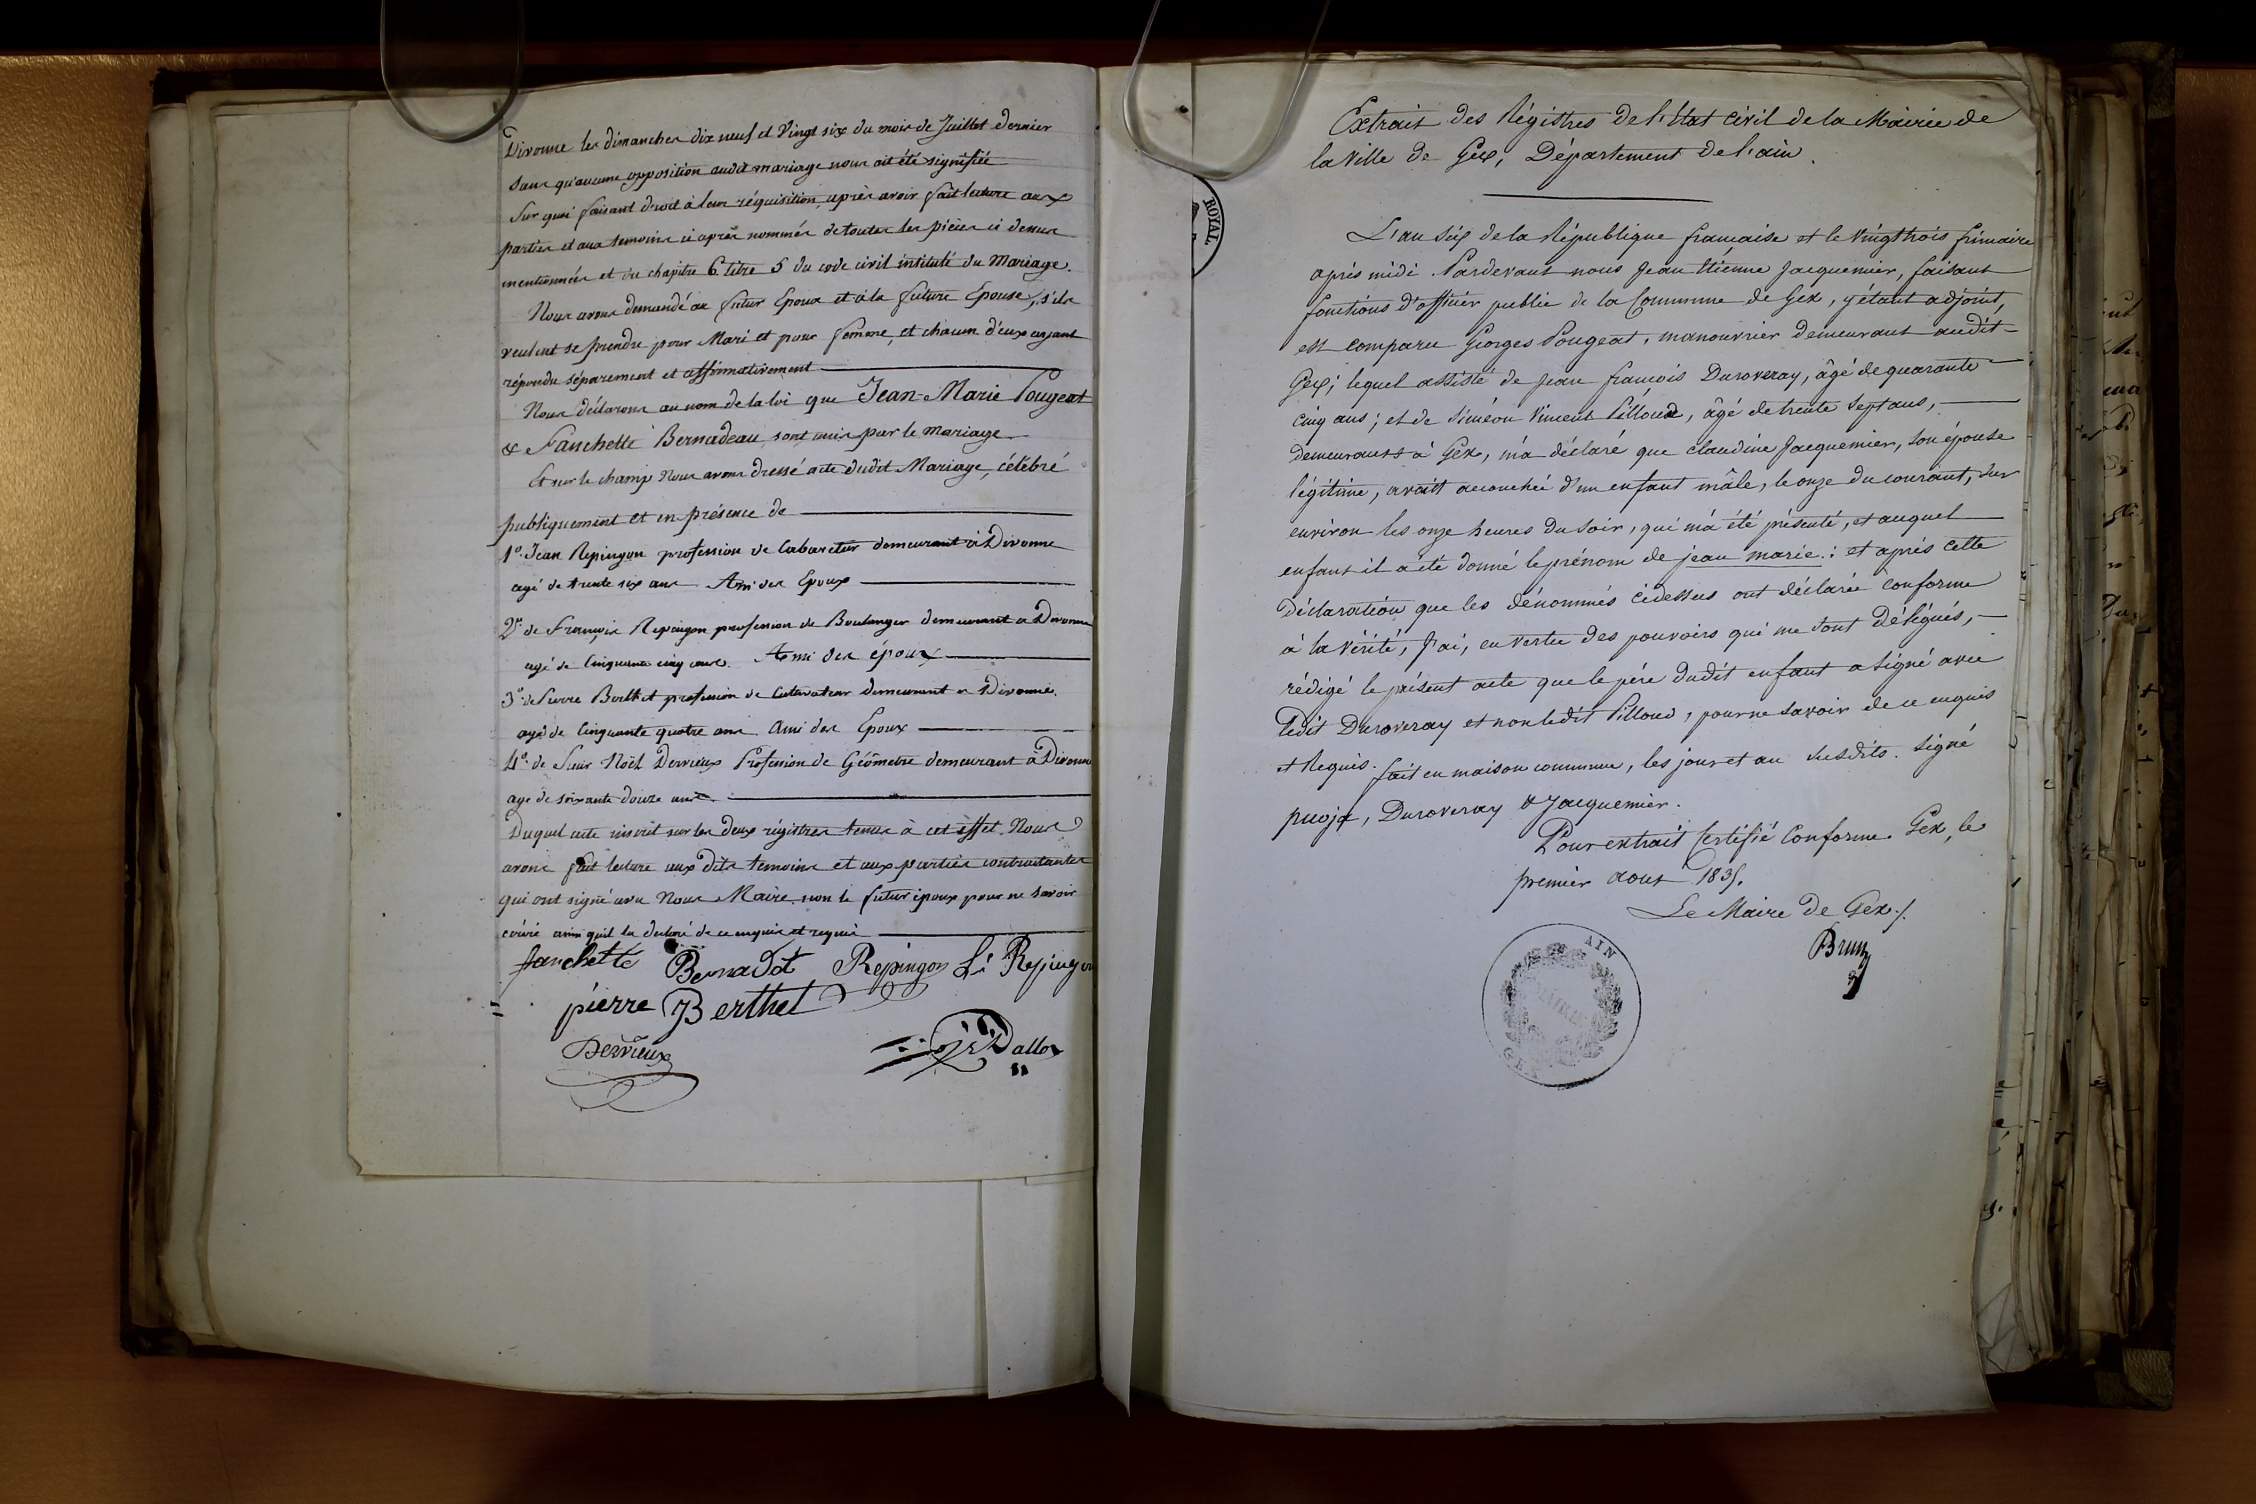 Divonne les dimanches dix neuf et Vingt six du mois de Juillet dernier
sans qu'aucune opposition audit mariage nous ait été signifiée
Sur quoi faisant droit à leur réquisition, après avoir fait lecture aux
parties et aux temoins ci après nommés de toutes les pièces ci dessus
mentionnées et du chapitre 6 titre 5 du code civil intitulé du Mariage.
Nous avons demandé au futur Epoux et à la future Epouse, s'ils
veulent se prendre pour Mari et pour femme, et chacun d'eux ayant
répondu séparement et affirmativement
Nous déclarons au nom de la loi que Jean-Marie Pougeat
& Fanchette Bernadeau sont unis par le mariage
Et sur le champ Nous avons dressé acte dudit Mariage, célébré
publiquement et en présence de
1º. Jean Repingon profession de Cabaretier demeurant à Divonne
agé de trente six ans Ami des Epoux
2º. de François Repingon profession de Boulanger demeurant a Divonne
agé de Cinquante cinq ans. Ami des époux
3º. de Pierre Berthet profession de Cultivateur demeurant a Divonne.
agé de Cinquante quatre ans Ami des Epoux
4º. de Sieur Noël Dervieux Profession de Géomètre demeurant à Divonne
age de soixante douze ans.
Duquel acte inscrit sur les deux régistres tenus à cet effet. Nous
avons fait lecture aux dits temoins et aux parties contractantes
qui ont signé avec Nous Maire, non le futur époux pour ne savoir
écrire ainsi quil la declaré de ce enquis et requis
fanchette Bernadot Repingon Repingon
pierre Berthet
Dervieux
ROYAL
Extrait des Régistres de l'Etat Civil de la Mairie de
la Ville de Gex, Département de l'ain.
L'an six de la République française et le vingt trois frimaire
après midi Pardevant nous Jean Etienne Jacquemier, faisant
fonctions d'officier public de la Commune de Gex, y étant adjoint,
est comparu Georges Pougeat, manouvrier demeurant audit
Gex; lequel assisté de Jean françois Duroveray, âgé de quarante
cinq ans; et de Siméon Vincent Pilloud, âgé de trente sept ans,
demeurants à Gex, m'a déclaré que claudine Jacquemier, son épouse
légitime, avait accouchée d'un enfant mâle, le onze du courant, sur
environ les onze heures du soir, qui m'a été présenté, et auquel
enfant il a été donné le prénom de jean marie.: et après cette
Déclaration que les dénommés cidessus ont déclarée conforme
à la vérité, J'ai, en vertu des pouvoirs qui me sont délégués,
rédigé le présent acte que le père dudit enfant a signé avec
ledit Duroveray et non ledit Pilloud, pour ne savoir de ce enquis
et Requis. fait en maison commune, les jour et an susdits. Signé
pujoz, Duroveray & Jacquemier.
Pour extrait Certifié Conforme. Gex, le
premier aout 1835.
Le Maire De Gex./.
Brun
AIN
GEX